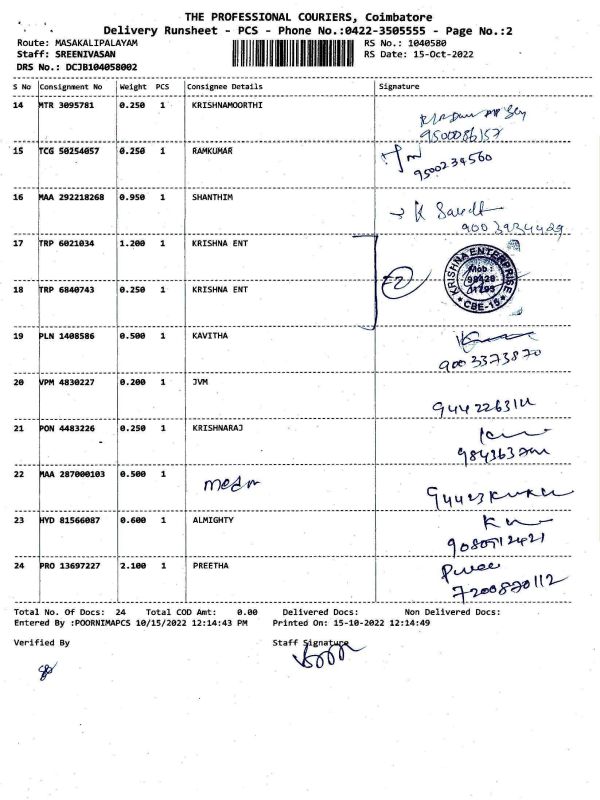 THE PROFESSIONAL COURIERS, Coimbatore
Delivery Runsheet - PCS - Phone No.:0422-3505555 - Page No.:2
Route: MASAKALIPALAYAM RS No.: 1040580
Staff: SREENIVASAN RS Date: 15-Oct-2022
DRS No.: DCJB104058002
S No Consignment No Weight PCS Consignee Details Signature
14 MTR 3095781 0.250 1 KRISHNAMOORTHI
9500086157
15 TCG 50254057 0.250 1 RAMKUMAR
9500234560
16 MAA 292218268 0.950 1 SHANTHIM
→ K
17 TRP 6021034 1.200 1 KRISHNA ENT
KRISHNA ENTERPRISE
Mob :
CBE-15
18 TRP 6840743 0.250 1 KRISHNA ENT
19 PLN 1408586 0.500 1 KAVITHA
9003373870
20 VPM 4830227 0.200 1 JVM
21 PON 4483226 0.250 1 KRISHNARAJ
22 MAA 287000103 0.500 1
23 HYD 81566087 0.600 1 ALMIGHTY
24 PRO 13697227 2.100 1 PREETHA
7200820112
Total No. Of Docs: 24 Total COD Amt: 0.00 Delivered Docs: Non Delivered Docs:
Entered By :POORNIMAPCS 10/15/2022 12:14:43 PM Printed On: 15-10-2022 12:14:49
Verified By Staff Signature